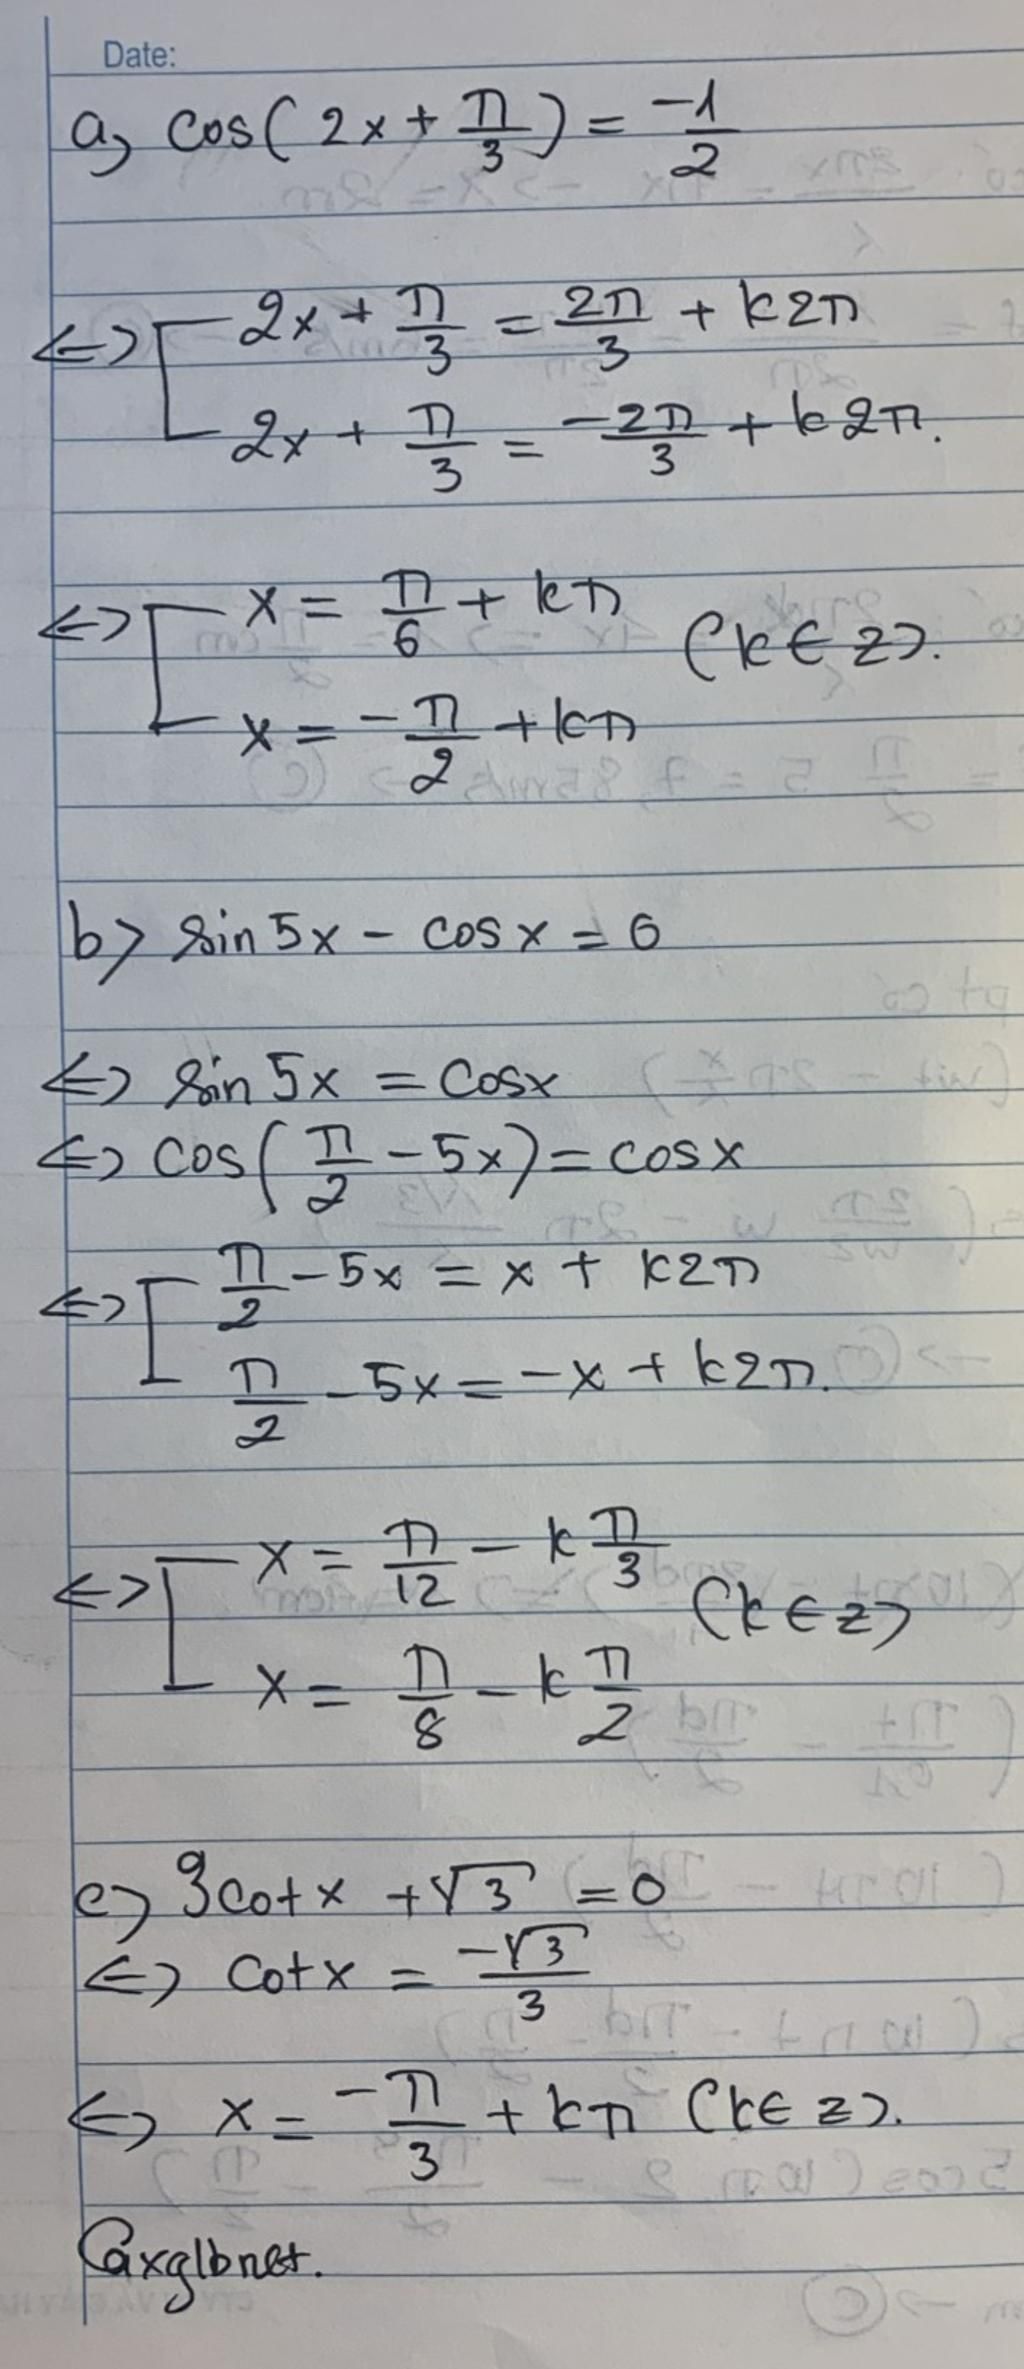 Date:
a, cos(2x + π/3) = -1/2
<=> [ 2x + π/3 = 2π/3 + k2π
2x + π/3 = -2π/3 + k2π.
<=> [ x = π/6 + kπ
(k ∈ Z).
x = -π/2 + kπ
b> sin 5x - cosx = 0
<=> sin 5x = cosx
<=> cos(π/2 - 5x) = cosx
<=> [ π/2 - 5x = x + k2π
π/2 - 5x = -x + k2π.
<=> [ x = π/12 - k π/3
(k ∈ Z)
x = π/8 - k π/2
c> 3cotx + √3 = 0
<=> cotx = -√3/3
<=> x = -π/3 + kπ (k ∈ Z).